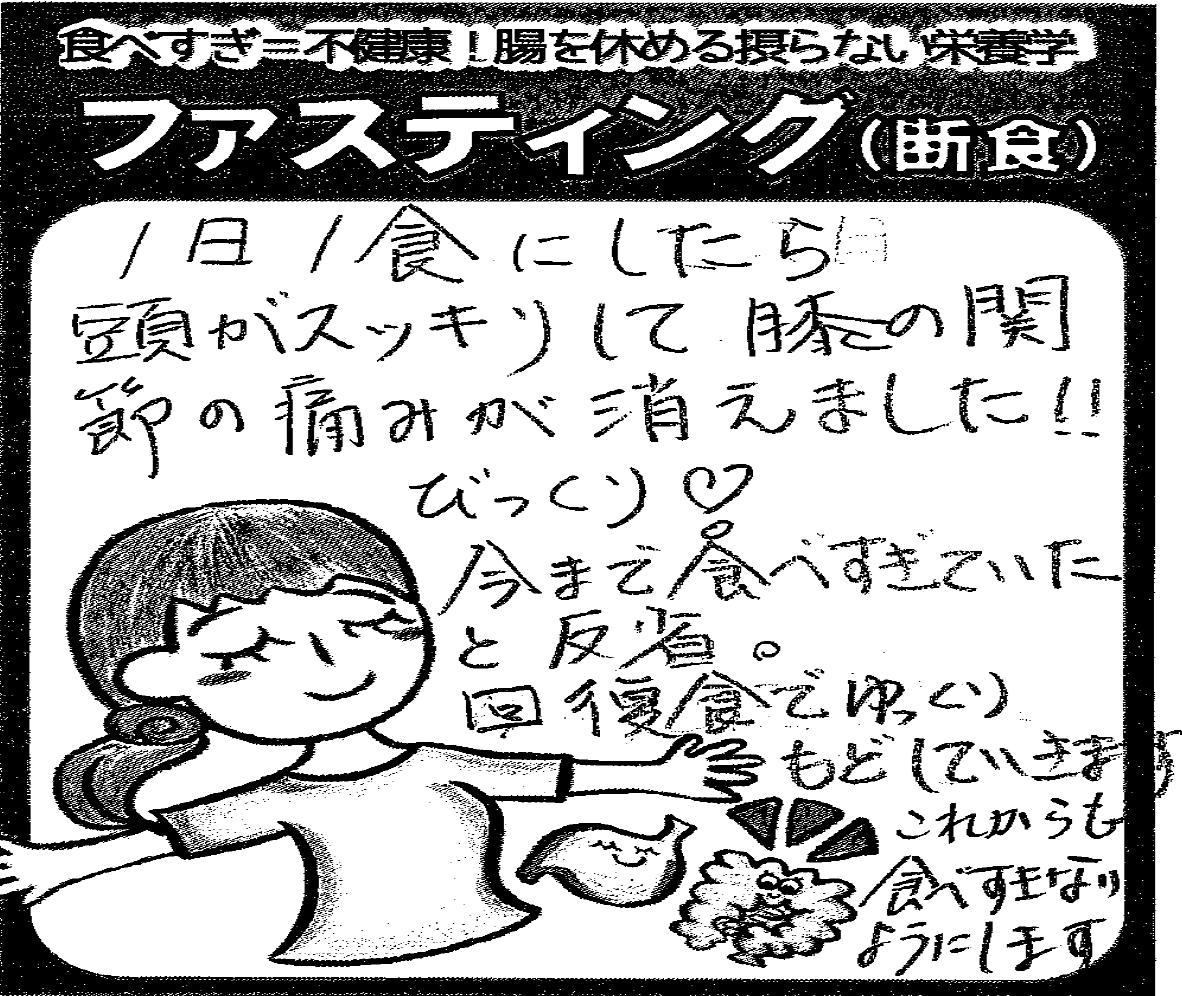 食べすぎ＝不健康！腸を休める摂らない栄養学
ファスティング（断食）
1日1食にしたら
頭がスッキリして膝の関
節の痛みが消えました!!
びっくり♡
今まで食べすぎていた
と反省。
回復食でゆっくり
もどしていきます
これからも
食べすぎない
ようにします